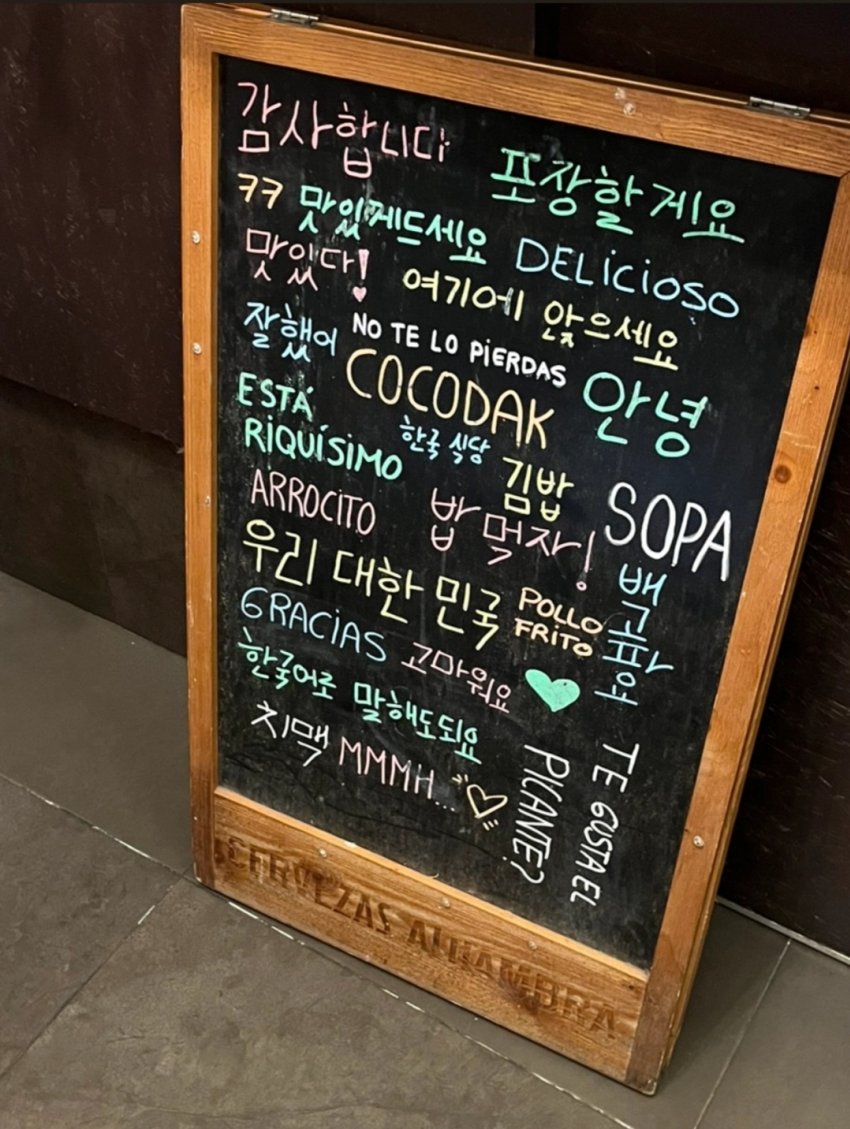 감사합니다
포장할게요
ㅋㅋ 맛있게드세요
DELiCiOSO
맛있다!
여기에 앉으세요
잘했어
NO TE LO PiERDAS
COCODAK
안녕
ESTÁ
RiQUÍSiMO
한국 식당
김밥
SOPA
ARROCITO
밥 먹자!
우리 대한 민국
POLLO
FRiTO
배고파요
GRACiAS
고마워요
한국어로 말해도되요
치맥
MMMH...
TE GUSTA EL
PICANTE?
CERVEZAS ALHAMBRA